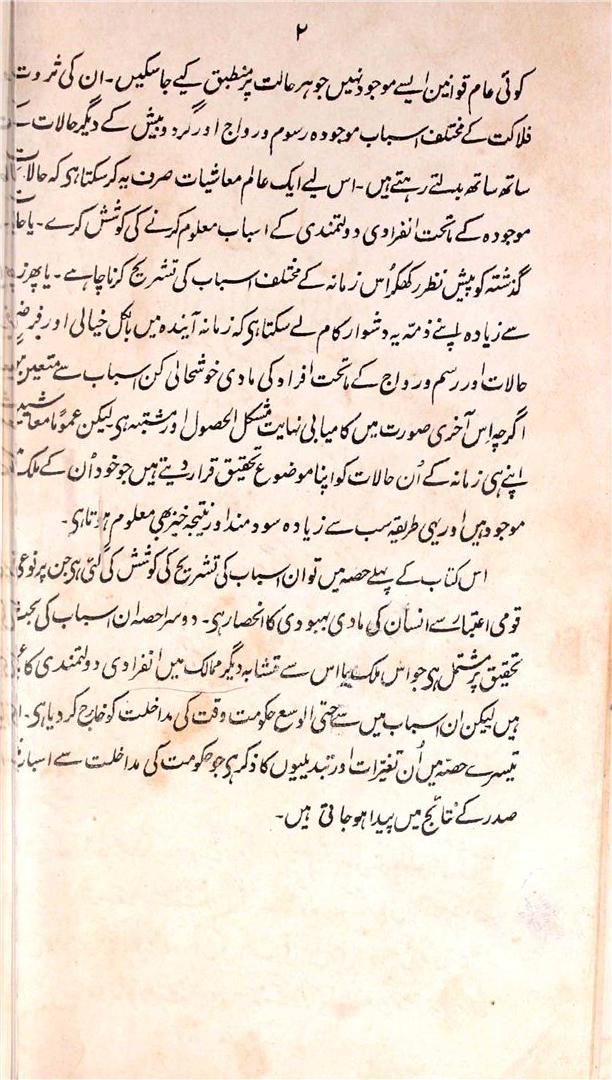 ۲
کوئی عام قوانین ایسے موجود نہیں جو ہر حالت پر منطبق کیے جا سکیں۔ ان کی ثروت
فلاکت کے مختلف اسباب موجودہ رسوم و رواج اور گرد و پیش کے دیگر حالات کے
ساتھ ساتھ بدلتے رہتے ہیں۔ اس لیے ایک عالم معاشیات صرف یہ کر سکتا ہی کہ حالات
موجودہ کے ماتحت انفرادی دولتمندی کے اسباب معلوم کرنے کی کوشش کرے۔ یا
گذشتہ کو پیش نظر رکھکر اُس زمانہ کے مختلف اسباب کی تشریح کرنا چاہے۔ یا پھر
سے زیادہ اپنے ذمہ یہ دشوار کام لے سکتا ہی کہ زمانہ آیندہ میں بالکل خیالی اور فرضی
حالات اور رسم و رواج کے ماتحت افراد کی مادی خوشحالی کن اسباب سے متعین
اگرچہ اس آخری صورت میں کامیابی نہایت مشکل الحصول اور مشتبہ ہی لیکن عموماً
اپنے ہی زمانہ کے اُن حالات کو اپنا موضوع تحقیق قرار دیتے ہیں جو خود اُن کے ملک
موجود ہیں اور یہی طریقہ سب سے زیادہ سودمند اور نتیجہ خیز بھی معلوم ہوتا ہی۔
اس کتاب کے پہلے حصہ میں تو ان اسباب کی تشریح کی کوشش کی گئی ہی جن پر نوعی
قومی اعتبار سے انسان کی مادی بہبودی کا انحصار ہی۔ دوسرا حصہ ان اسباب کی بحث
تحقیق پر مشتمل ہی جو اس ملک یا اس سے متشابہ دیگر ممالک میں انفرادی دولتمندی کا
ہیں لیکن ان اسباب میں سے حتی الوسع حکومت وقت کی مداخلت کو خارج کر دیا ہی۔
تیسرے حصہ میں اُن تغیرات اور تبدیلیوں کا ذکر ہی جو حکومت کی مداخلت سے اسباب
صدر کے نتائج میں پیدا ہو جاتی ہیں۔